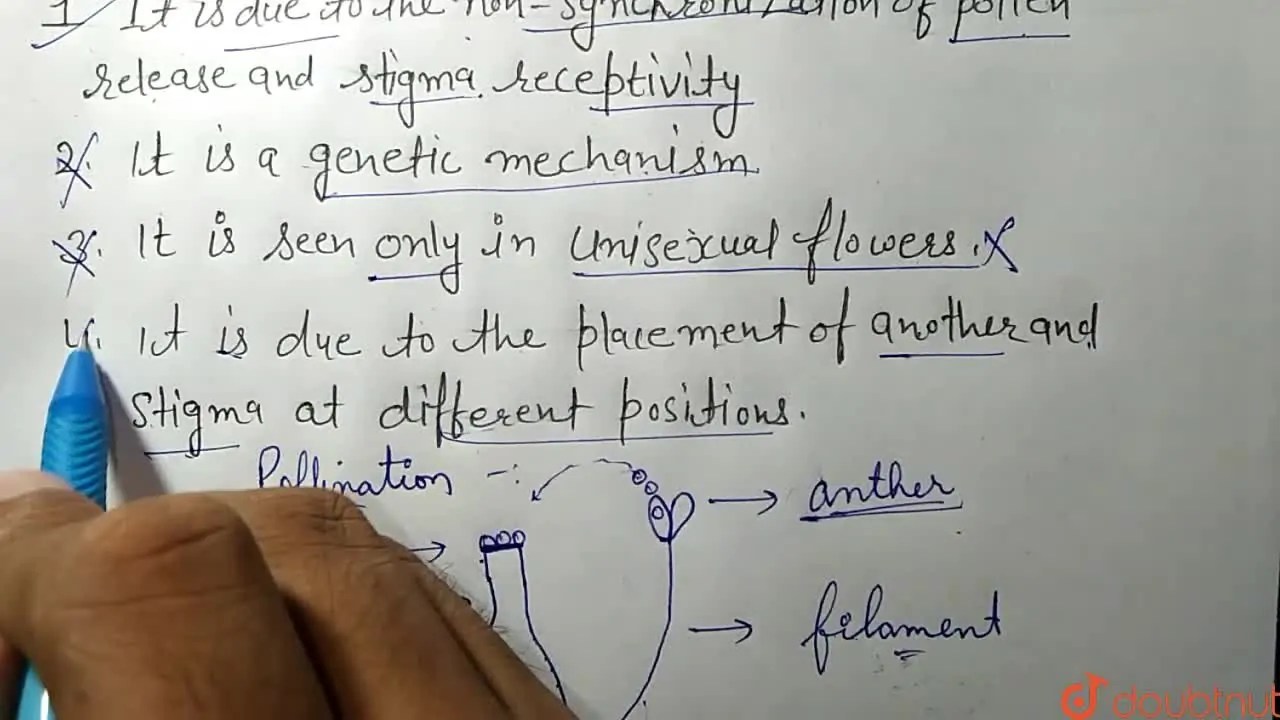 1 It is due to the non-synchronization of pollen
release and stigma receptivity
2. It is a genetic mechanism.
3. It is seen only in unisexual flowers. X
4. It is due to the placement of another and
stigma at different positions.
Pollination -:
anther
filament
doubtnut